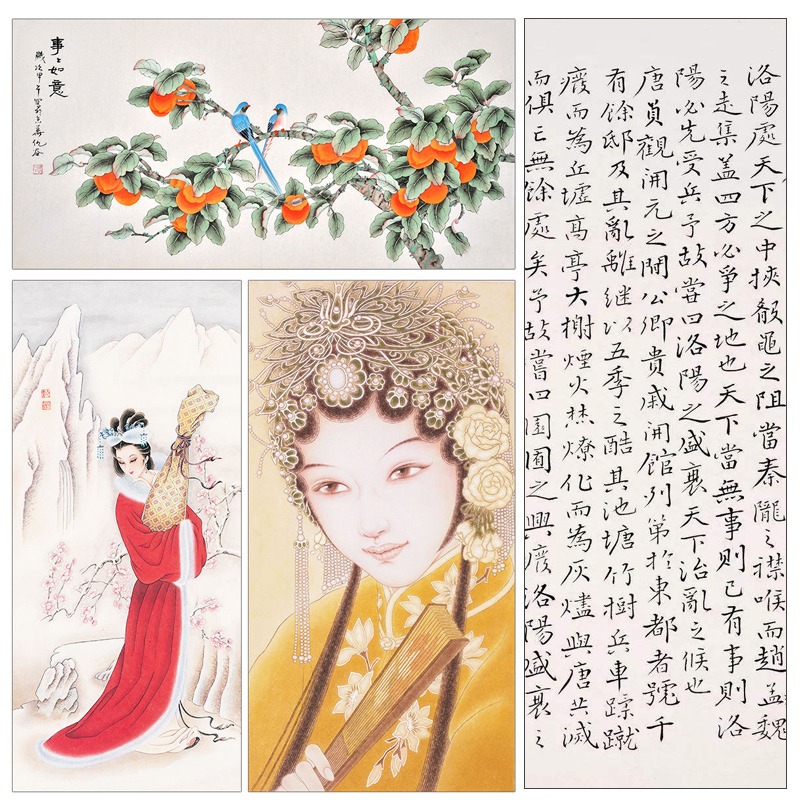 事〻如意
歲次甲午
洛陽處天下之中挾殽黽之阻當秦隴之襟喉而趙盖魏
之走集盖四方必爭之地也天下當無事則已有事則洛
陽必先受兵予故嘗曰洛陽之盛衰天下治亂之候也
唐貞觀開元之間公卿貴戚開館列第於東都者號千
有餘邸及其亂離継以五季之酷其池塘竹樹兵車蹂蹴
廢而為丘墟高亭大榭煙火焚燎化而為灰燼與唐共滅
而俱亡無餘處矣予故嘗曰園囿之興廢洛陽盛衰之